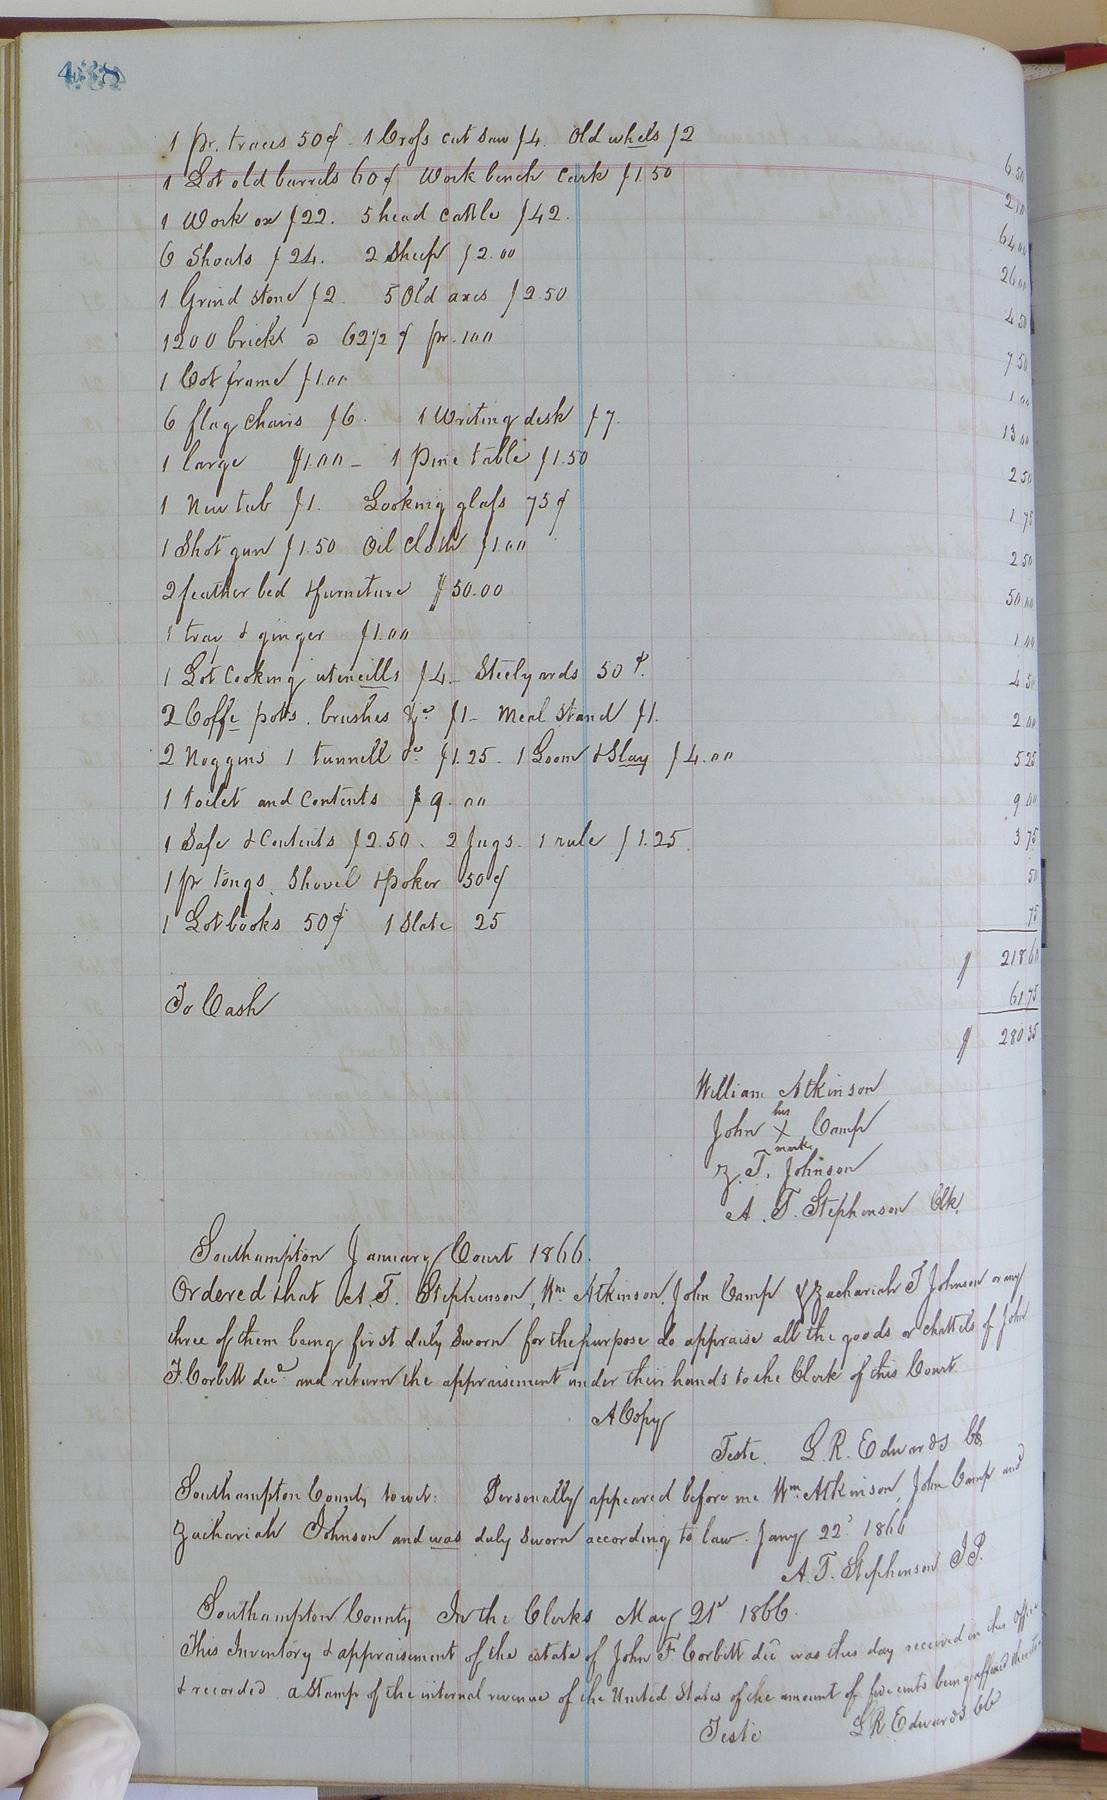 438
1 pr. traces 50¢. 1 Cross cut saw $4. Old whels $2 6 50
1 Lot old barrels 60¢ Work bench cask $1.50 2 10
1 Work ox $22. 5 head cattle $42. 64.00
6 Shoats $24. 2 Sheep $2.00 26 00
1 Grind stone $2. 5 Old axes $2.50 4 50
1200 bricks @ 62 1/2 ¢ pr. 100 7 50
1 Cot frame $1.00 1 00
6 flag chairs $6. 1 Writing desk $7. 13 00
1 large $1.00 – 1 Pine table $1.50 2 50
1 New tub $1. Looking glass 75¢ 1 75
1 Shot gun $1.50 Oil cloth $1.00 2 50
2 feather bed & furneture $50.00 50 00
1 tray & ginger $1.00 1 00
1 Lot Cooking utincills $4 – Steelyards 50¢. 4 50
2 Coffe pots. brushes &c $1 – Meal stand $1. 2 00
2 Noggins 1 tunnell &c $1.25. 1 Loom & Slay $4.00 5 25
1 toilet and Contents $9.00 9 00
1 Safe & Contents $2.50. 2 Jugs. 1 rule $1.25 3 75
1 pr tongs, Shovel & poker 50¢ 50
1 Lot books 50¢ 1 Slate 25 75
$ 218 60
To Cash 61 75
$ 280 35
William Atkinson
his
John X Camp
mark
Z. T. Johnson
A. T. Stephenson Clk.
Southampton January Court 1866.
Ordered that A. T. Stephenson, Wm Atkinson, John Camp & Zachariah T Johnson or any
three of them being first duly sworn for the purpose do appraise all the goods or chattels of John
F. Corbitt decd and return the appraisement under their hands to the Clerk of this Court
A Copy
Teste. L. R. Edwards CC
Southampton County to wit: Personally appeared before me Wm Atkinson, John Camp and
Zachariah Johnson and was duly sworn according to law. Jany 22d 1866
A. T. Stephenson J.P.
Southampton County In the Clerks May 21st 1866.
This Inventory & appraisement of the estate of John F Corbitt decd was this day received in this Office
& recorded a Stamp of the internal revenue of the United States of the amount of five cents being affixed thereto
Teste L R Edwards CC